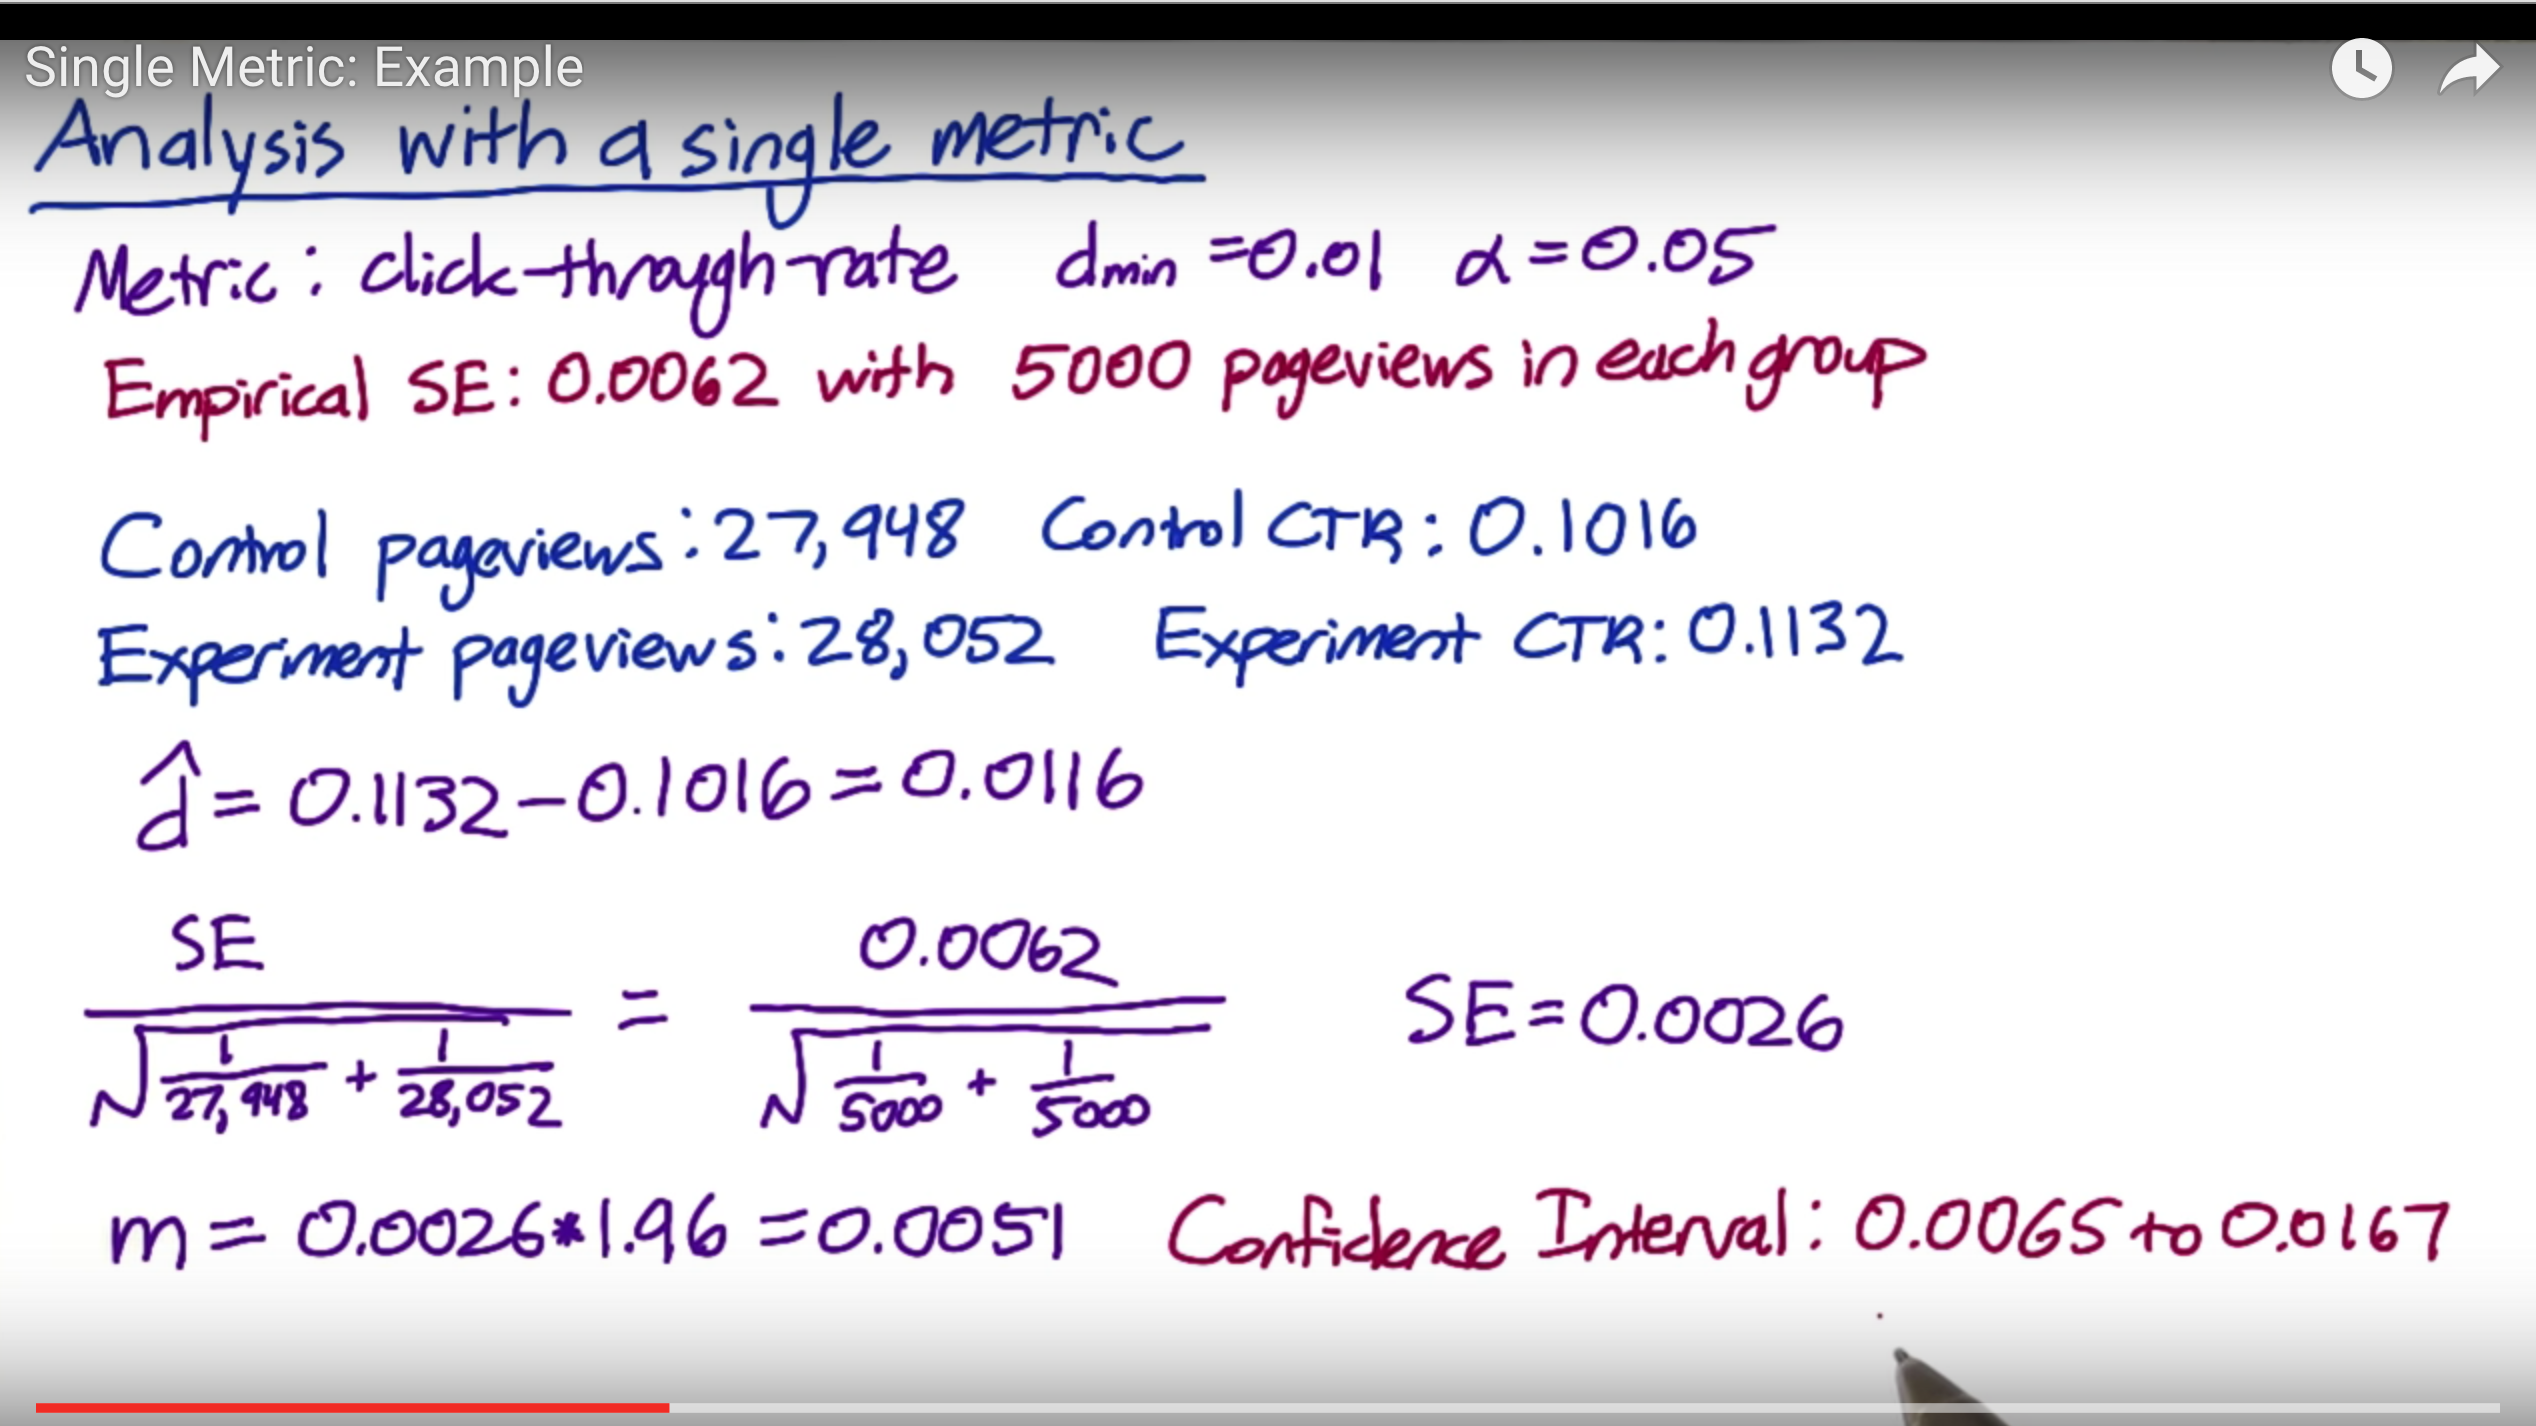 Single Metric: Example
Analysis with a single metric
Metric: click-through-rate dmin =0.01 α=0.05
Empirical SE: 0.0062 with 5000 pageviews in each group
Control pageviews: 27,948 Control CTR: 0.1016
Experiment pageviews: 28,052 Experiment CTR: 0.1132
d̂ = 0.1132-0.1016=0.0116
SE / √(1/27,948 + 1/28,052) = 0.0062 / √(1/5000 + 1/5000) SE=0.0026
m = 0.0026*1.96 =0.0051 Confidence Interval: 0.0065 to 0.0167